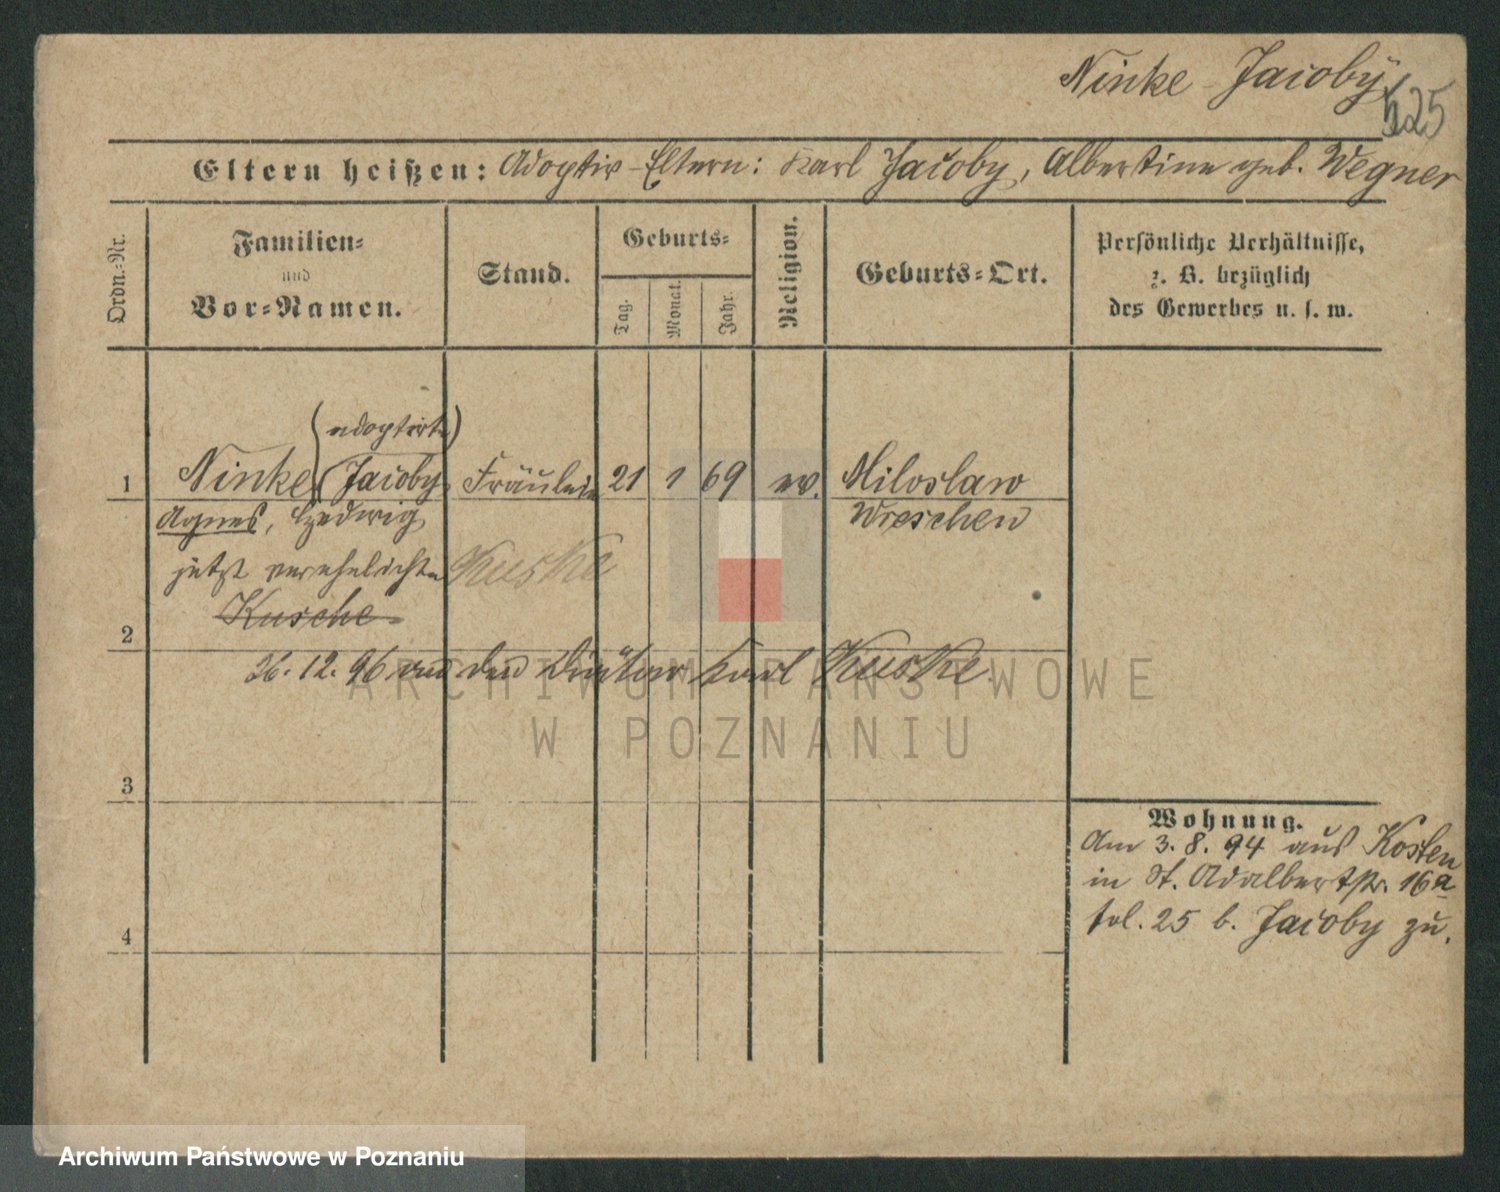 Ninke Jacoby
525
Eltern heißen: Adoptiv-Eltern: Karl Jacoby, Albertine geb. Wegner
Ordn.-Nr.
Familien-
und
Vor-Namen.
Stand.
Geburts-
Tag.
Monat.
Jahr.
Religion.
Geburts-Ort.
Persönliche Verhältnisse,
z. B. bezüglich
des Gewerbes u. s. w.
(adoptirte)
1 Ninke (Jacoby Fräulein 21 1 69 ev. Miloslaw
Agnes, Hedwig Wreschen
jetzt verehelichte Kuske
Kusche
2
26. 12. 96 den Diätar Karl Kuske.
ARCHIWUM PAŃSTWOWE
W POZNANIU
3
Wohnung.
Am 3. 8. 94 aus Kosten
in St. Adalbertstr. 16a
fol. 25 b. Jacoby zu.
4
Archiwum Państwowe w Poznaniu